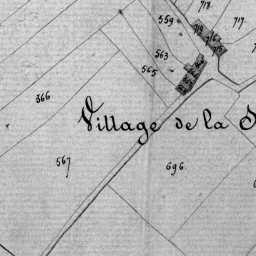 718
559
717
563
565
566
Village de la
567
696